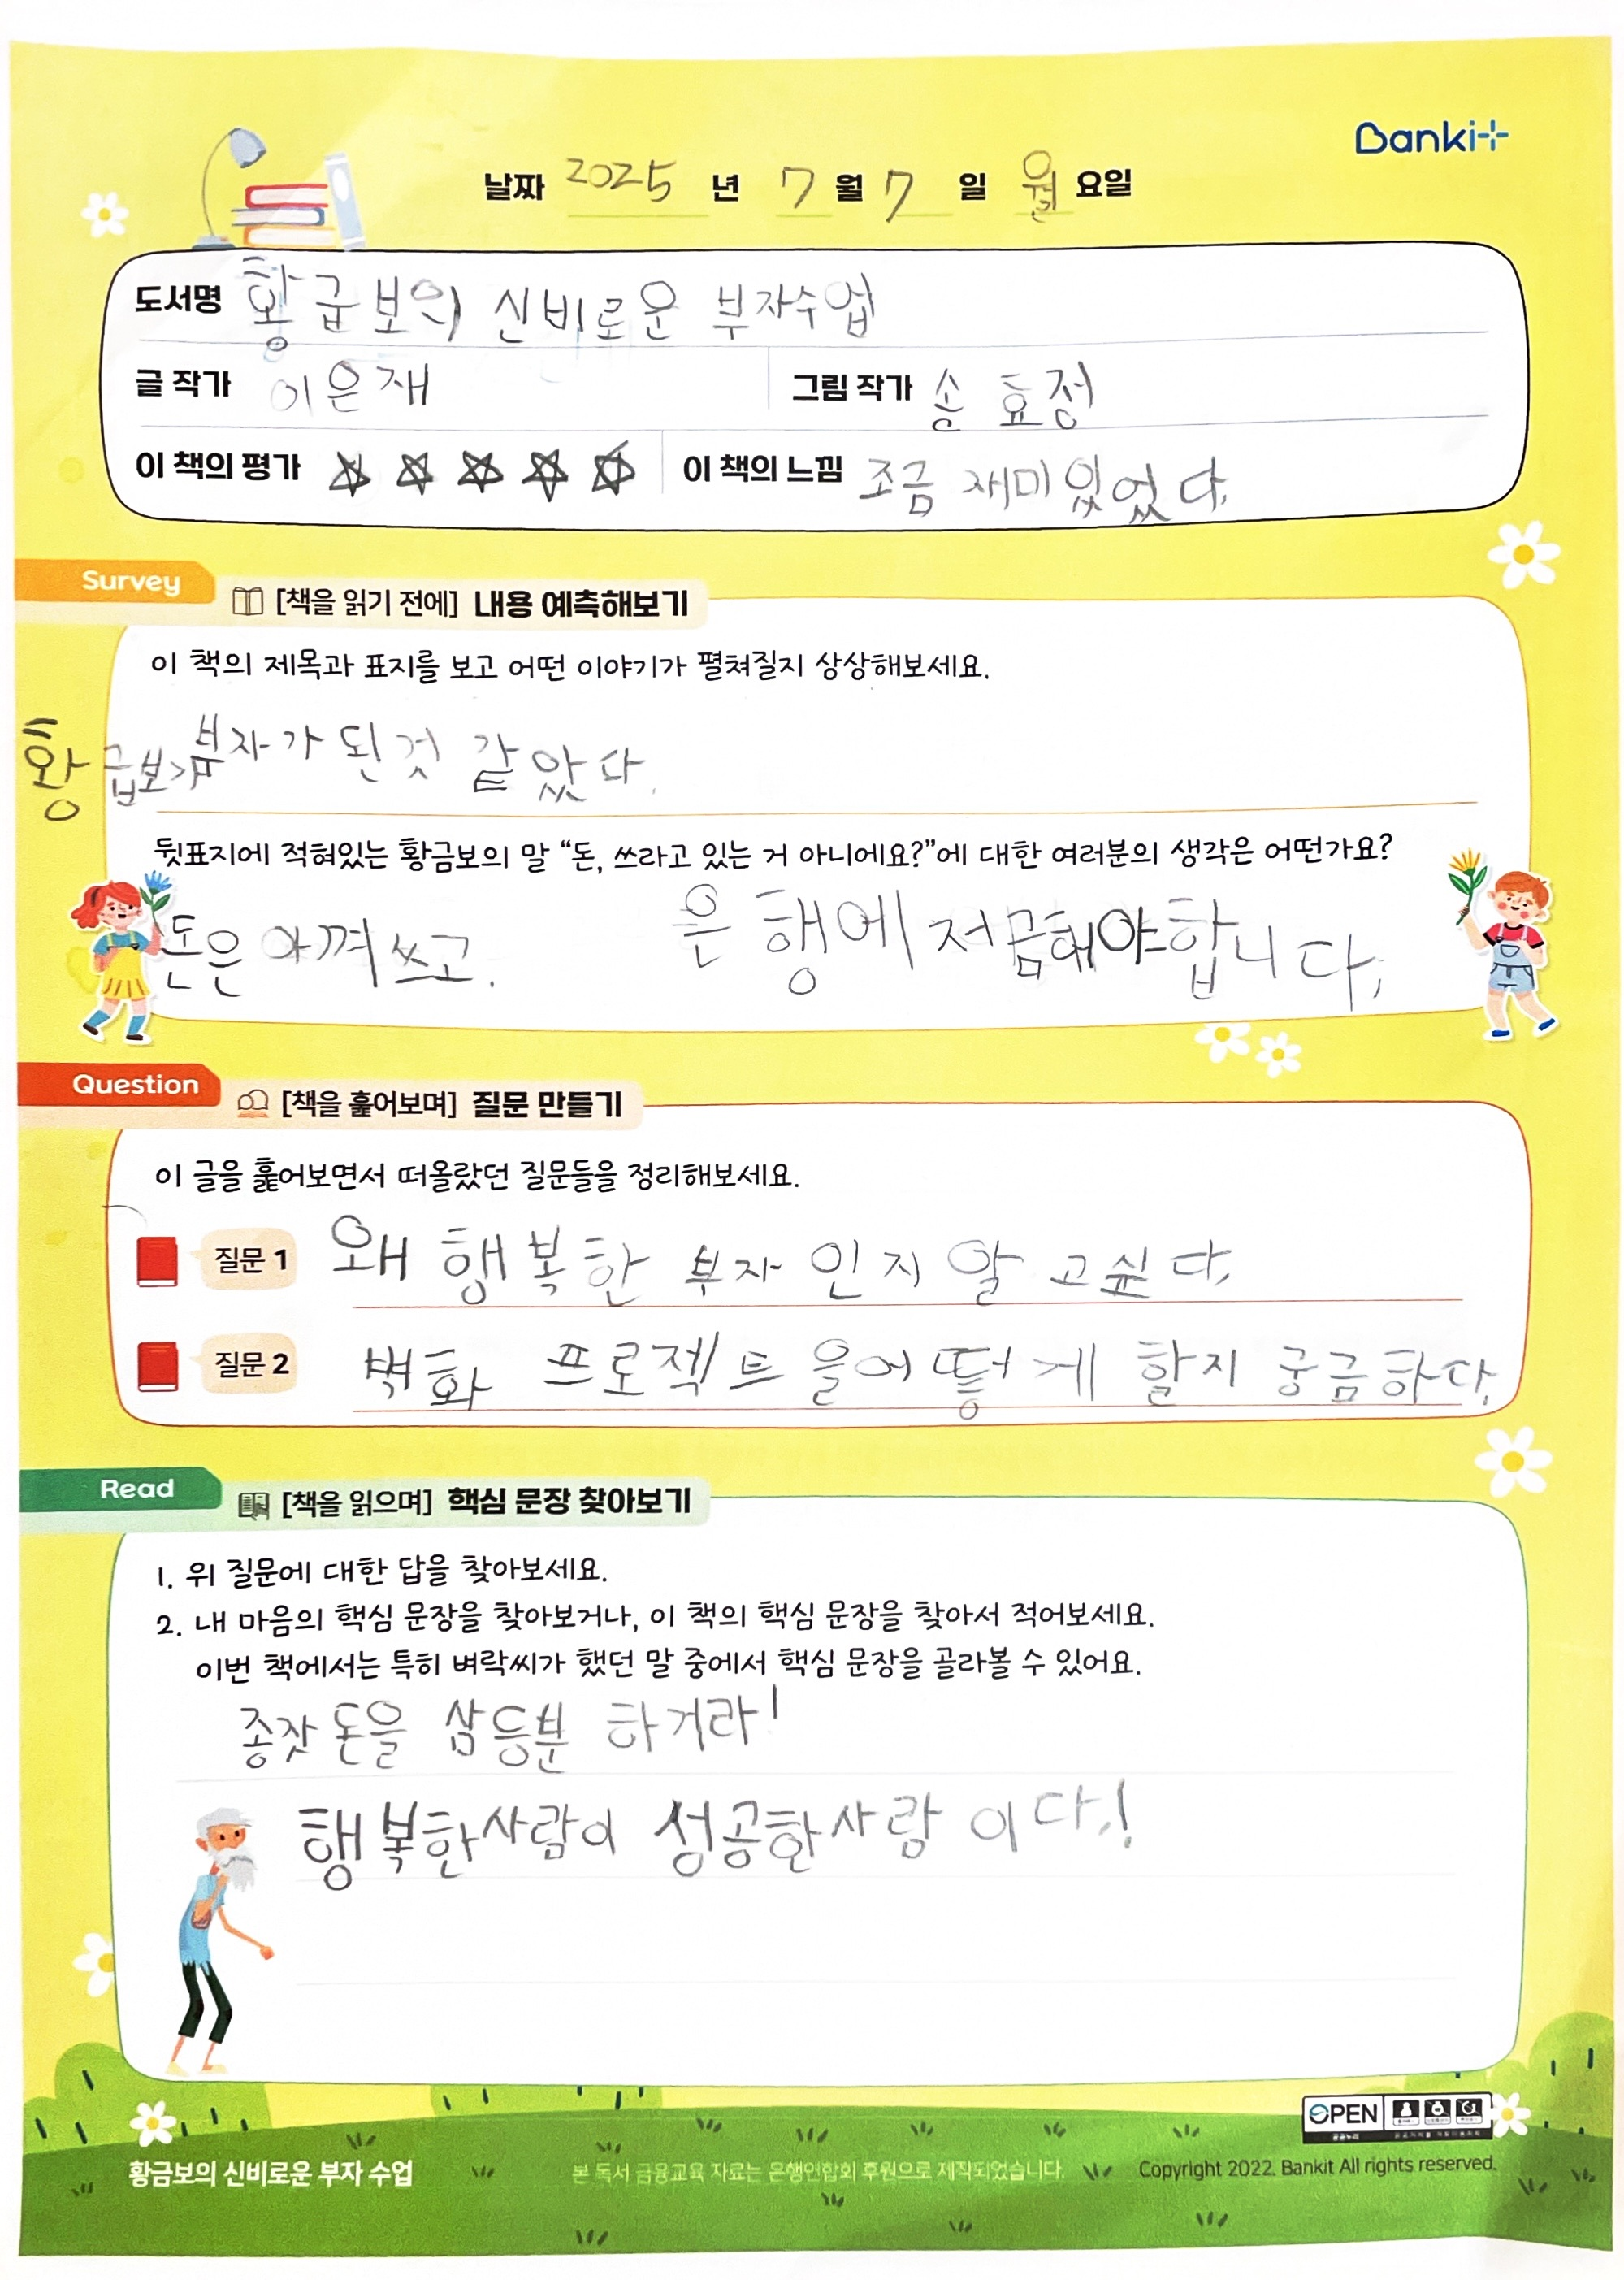 Bankit
날짜 2025 년 7 월 7 일 월 요일
도서명 황급보의 신비로운 부자수업
글 작가 이은재 그림 작가 송효정
이 책의 평가 ☆☆☆☆☆ 이 책의 느낌 조금 재미있었다.
Survey
[책을 읽기 전에] 내용 예측해보기
이 책의 제목과 표지를 보고 어떤 이야기가 펼쳐질지 상상해보세요.
황급보가 부자가 된것 같았다.
뒷표지에 적혀있는 황금보의 말 “돈, 쓰라고 있는 거 아니에요?”에 대한 여러분의 생각은 어떤가요?
돈은 아껴쓰고. 은행에 저금해야합니다.
Question
[책을 훑어보며] 질문 만들기
이 글을 훑어보면서 떠올랐던 질문들을 정리해보세요.
질문 1 왜 행복한 부자인지 알고싶다.
질문 2 벾화 프로젝트을어떻게 할지 궁금하다.
Read
[책을 읽으며] 핵심 문장 찾아보기
1. 위 질문에 대한 답을 찾아보세요.
2. 내 마음의 핵심 문장을 찾아보거나, 이 책의 핵심 문장을 찾아서 적어보세요.
이번 책에서는 특히 벼락씨가 했던 말 중에서 핵심 문장을 골라볼 수 있어요.
종잣돈을 삼등분 하거라!
행복한사람이 성공한사람이다.!
OPEN
공공누리
황금보의 신비로운 부자 수업
본 독서 금융교육 자료는 은행연합회 후원으로 제작되었습니다.
Copyright 2022. Bankit All rights reserved.